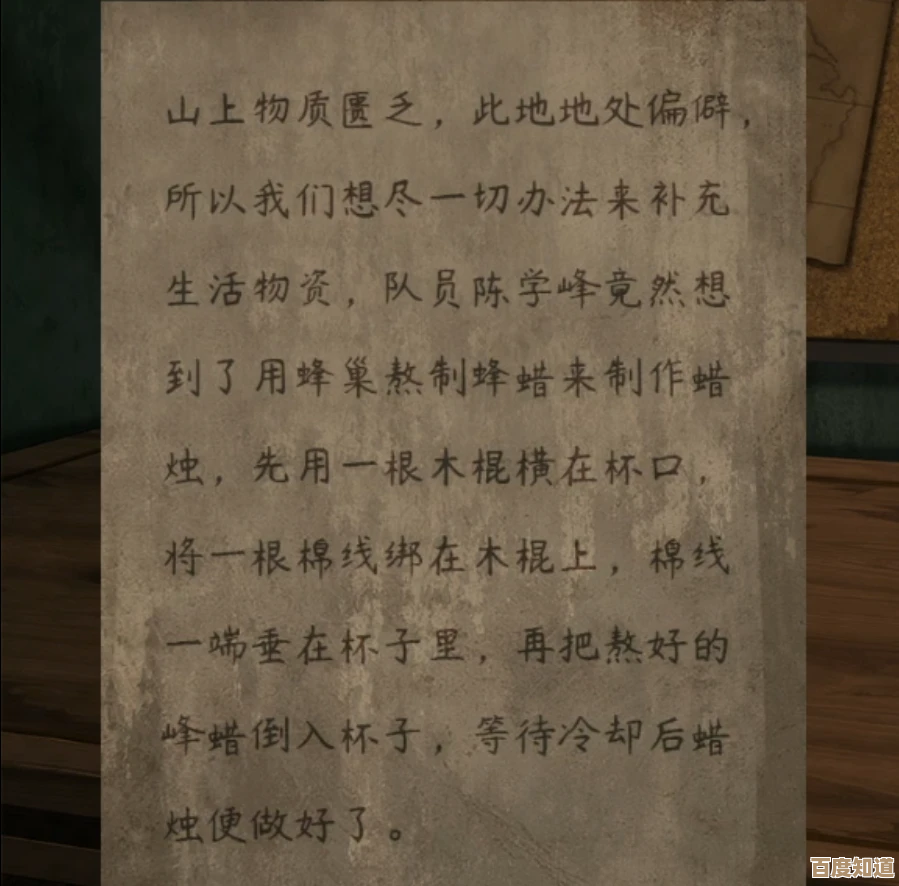 山上物质匮乏，此地地处偏僻，
所以我们想尽一切办法来补充
生活物资，队员陈学峰竟然想
到了用蜂巢熬制蜂蜡来制作蜡
烛，先用一根木棍横在杯口，
将一根棉线绑在木棍上，棉线
一端垂在杯子里，再把熬好的
峰蜡倒入杯子，等待冷却后蜡
烛便做好了。
百度知道